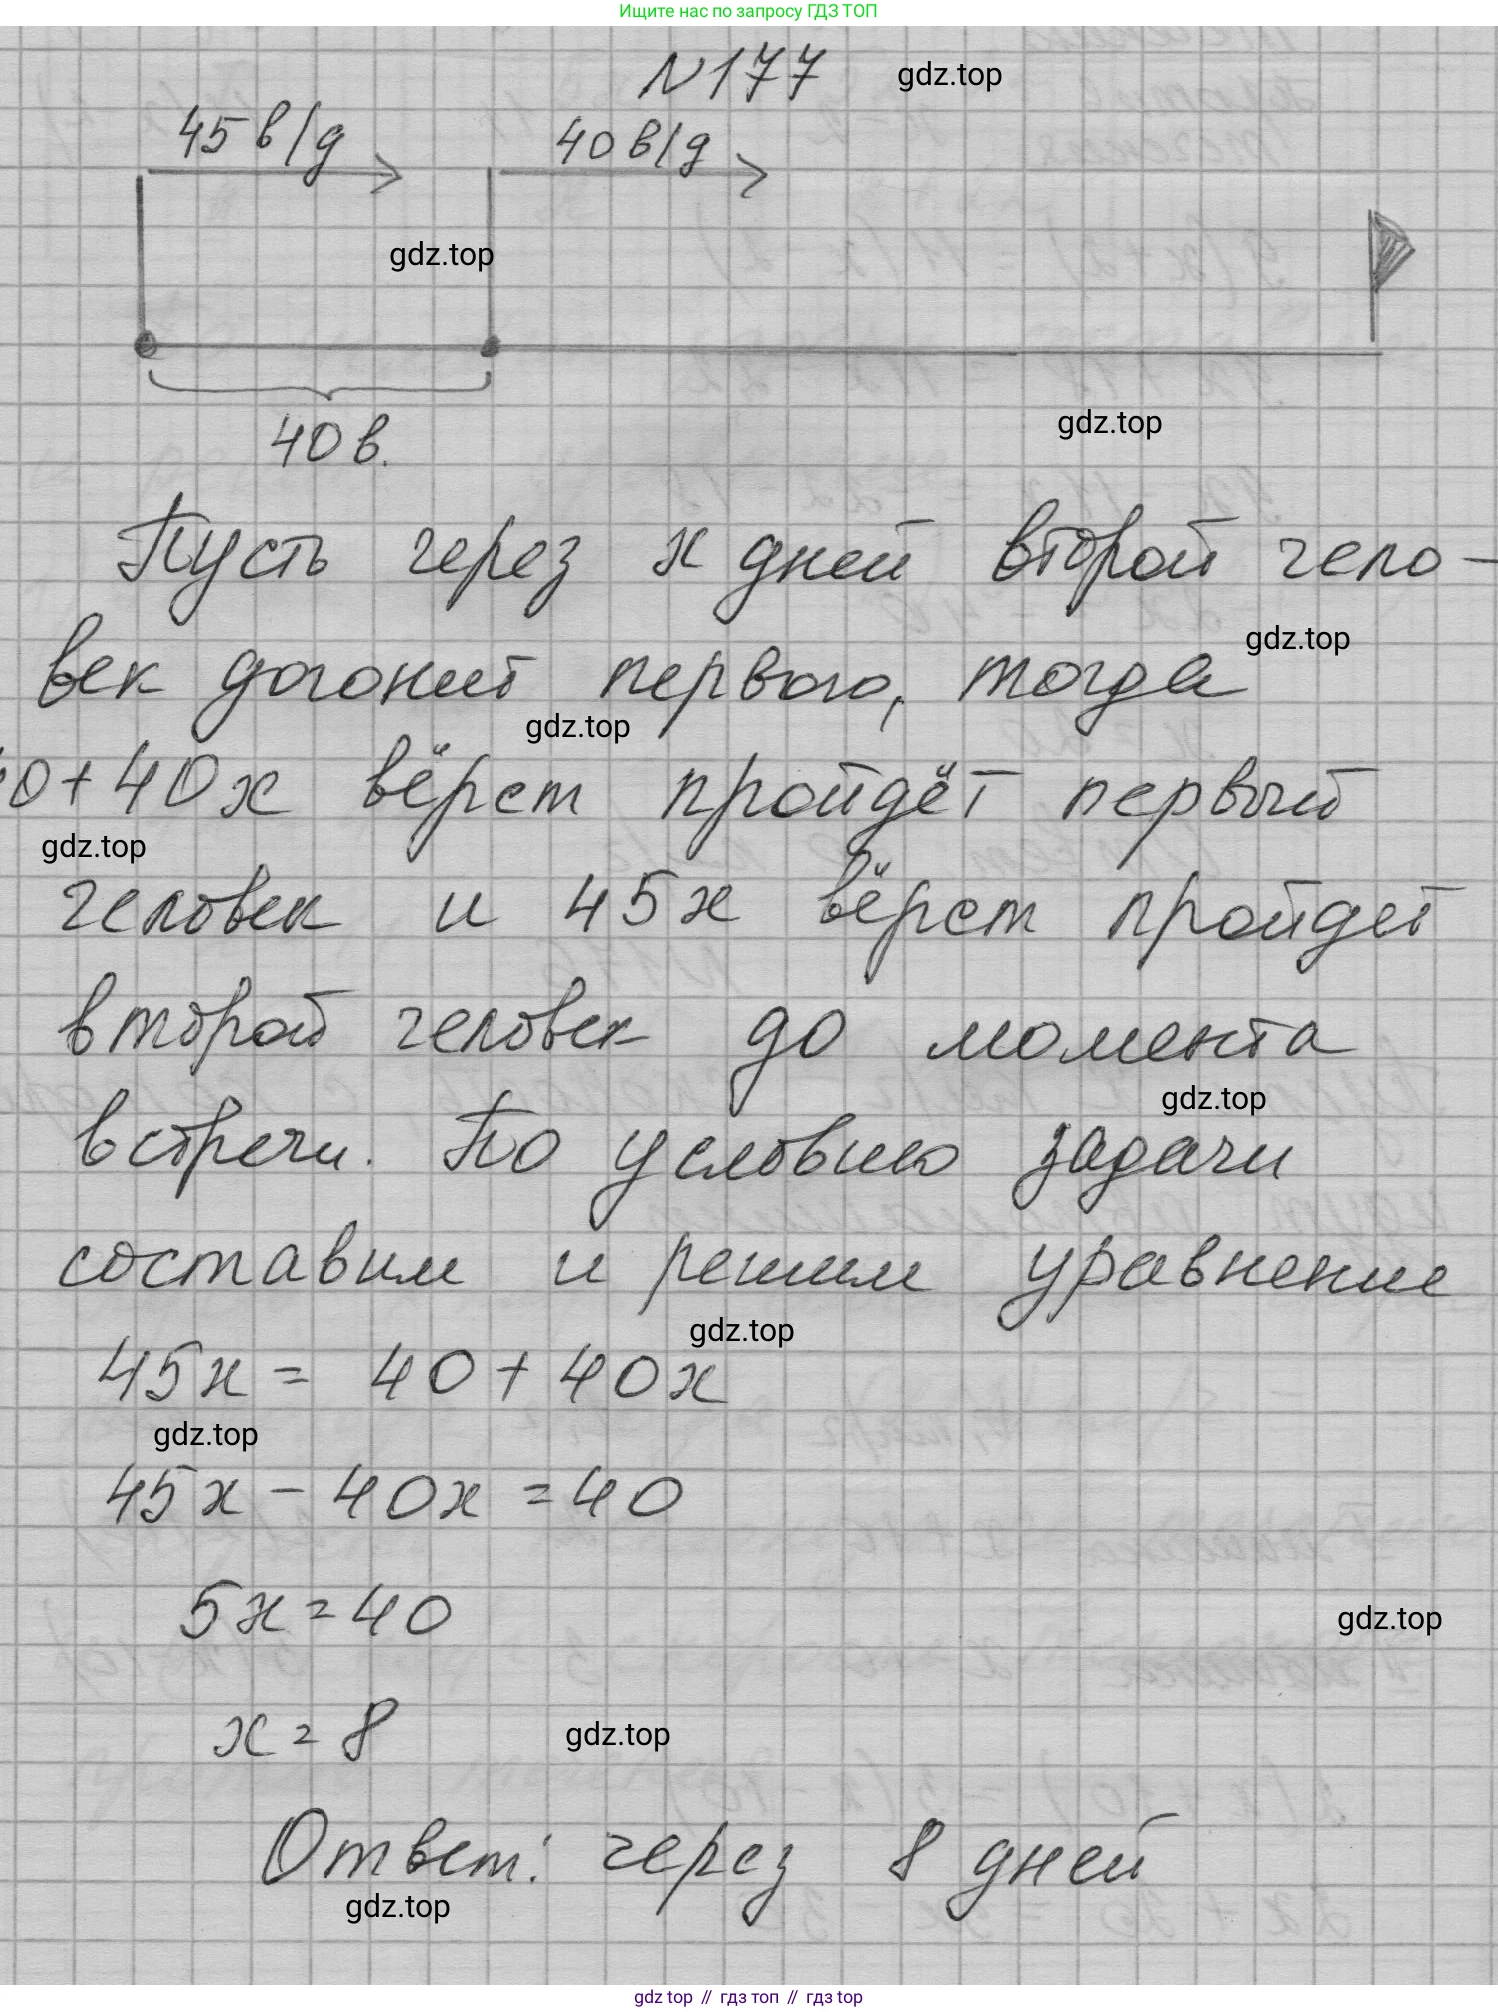 Ищите нас по запросу ГДЗ ТОП
N177 gdz.top
45 в/д 40 в/д
gdz.top
40 в.
gdz.top
Пусть через x дней второй чело-
gdz.top
век догонит первого, тогда
gdz.top
40+40x вёрст пройдёт первый
gdz.top
человек и 45x вёрст пройдет
второй человек до момента
gdz.top
встречи. По условию задачи
составим и решим уравнение
gdz.top
45x = 40 + 40x
gdz.top
45x - 40x = 40
5x = 40
gdz.top
x = 8
gdz.top
Ответ: через 8 дней
gdz.top
gdz top // гдз топ // гдз top